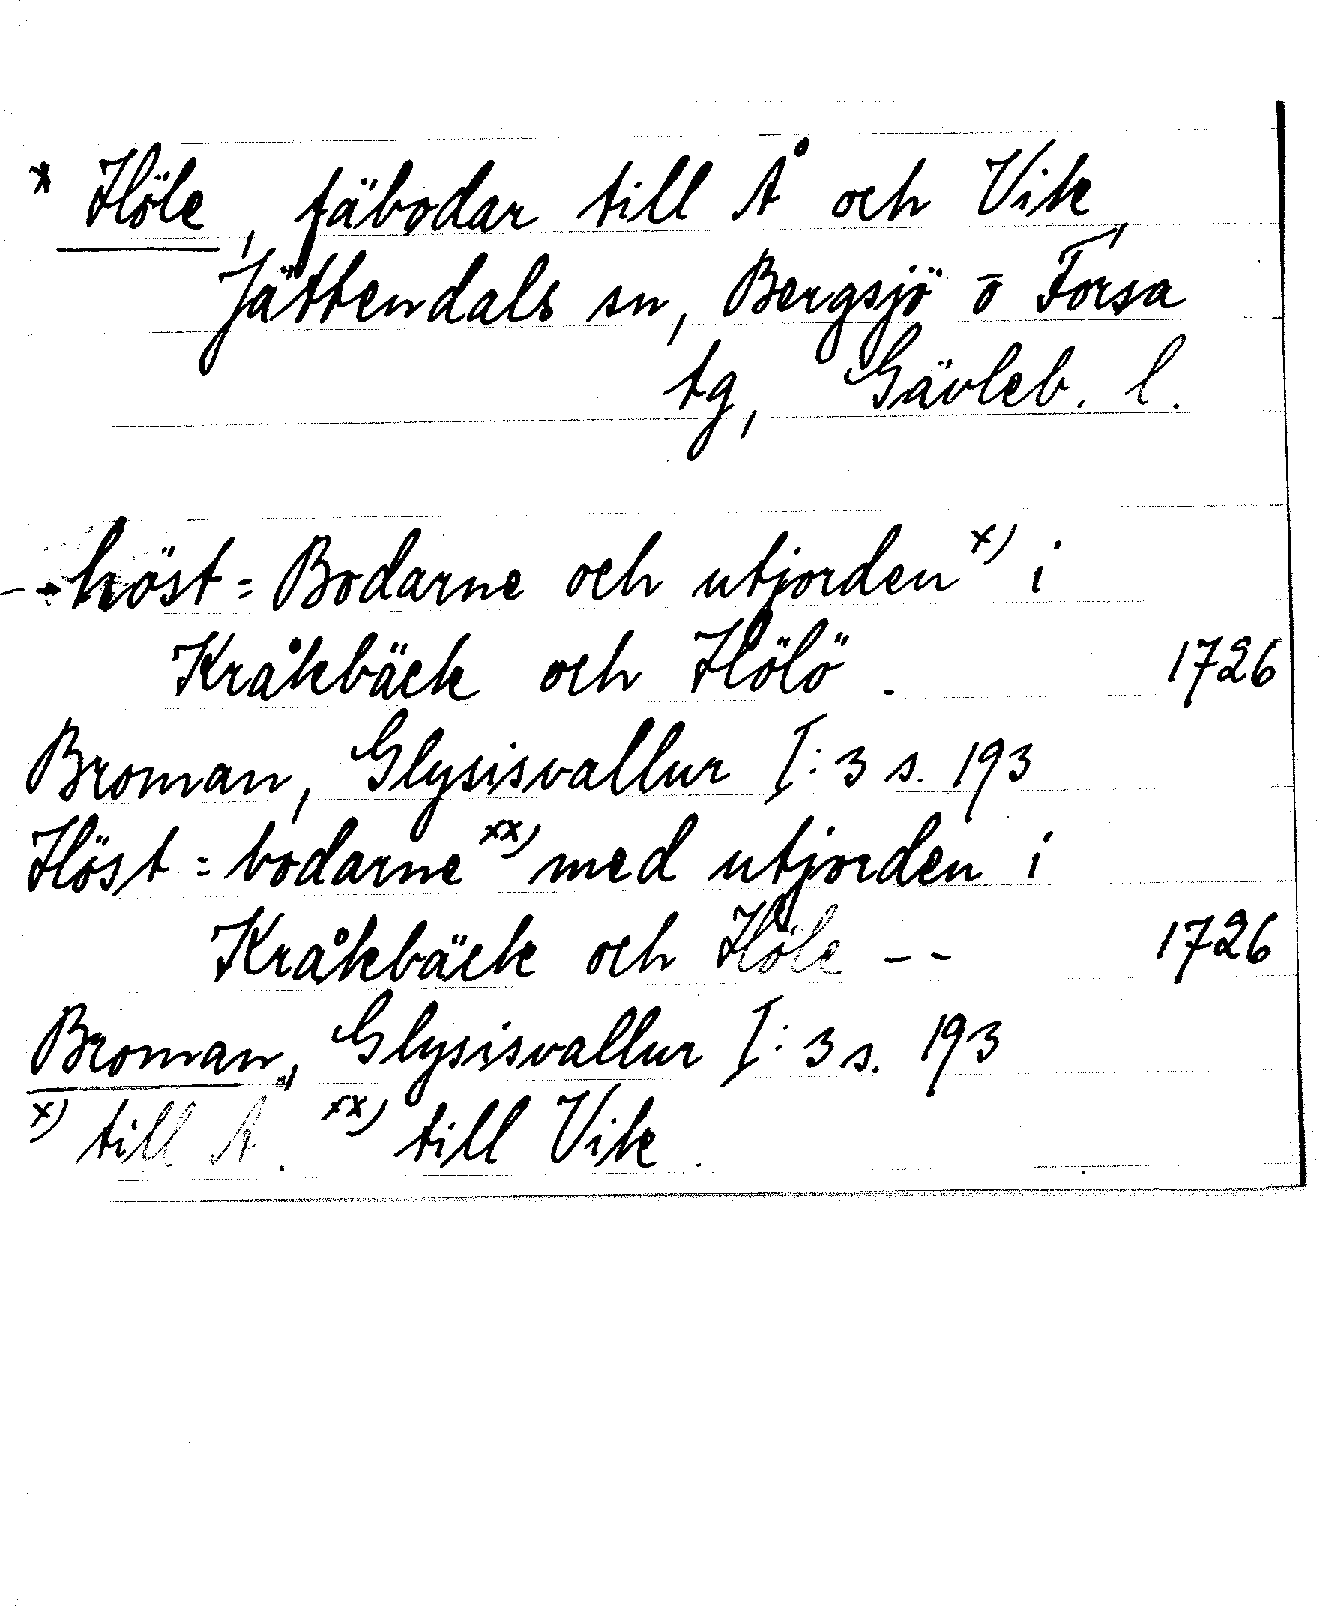 x Höle, fäbodar till Å och Vik,
Jättendals sn, Bergsjö o Forsa
tg, Gävleb. l.
-- höst = Bodarne och utjorden x) i
Kråkbäck och Hölö. 1726
Broman, Glysisvallur I: 3 s. 193
Höst = bodarne xx) med utjorden i
Kråkbäck och Höle -- 1726
Broman, Glysisvallur I: 3 s. 193
x) till Å. xx) till Vik.